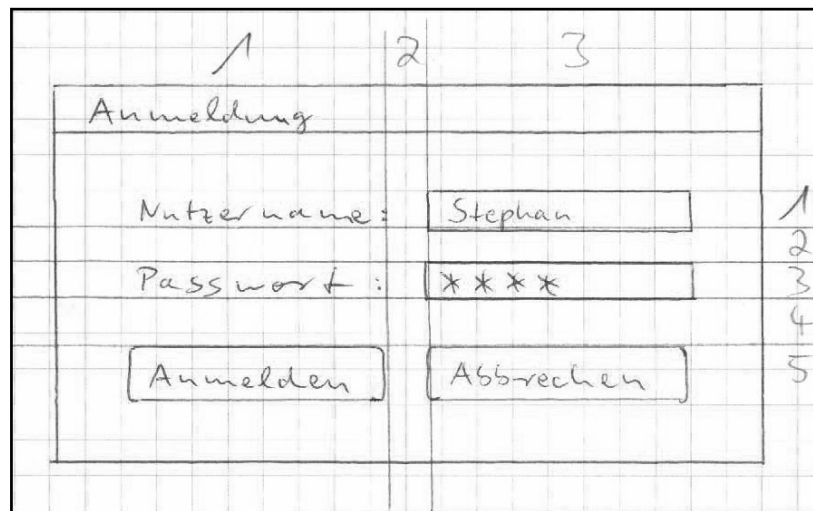 1 2 3
Anmeldung
Nutzername: Stephan 1
2
Passwort: **** 3
4
Anmelden Abbrechen 5